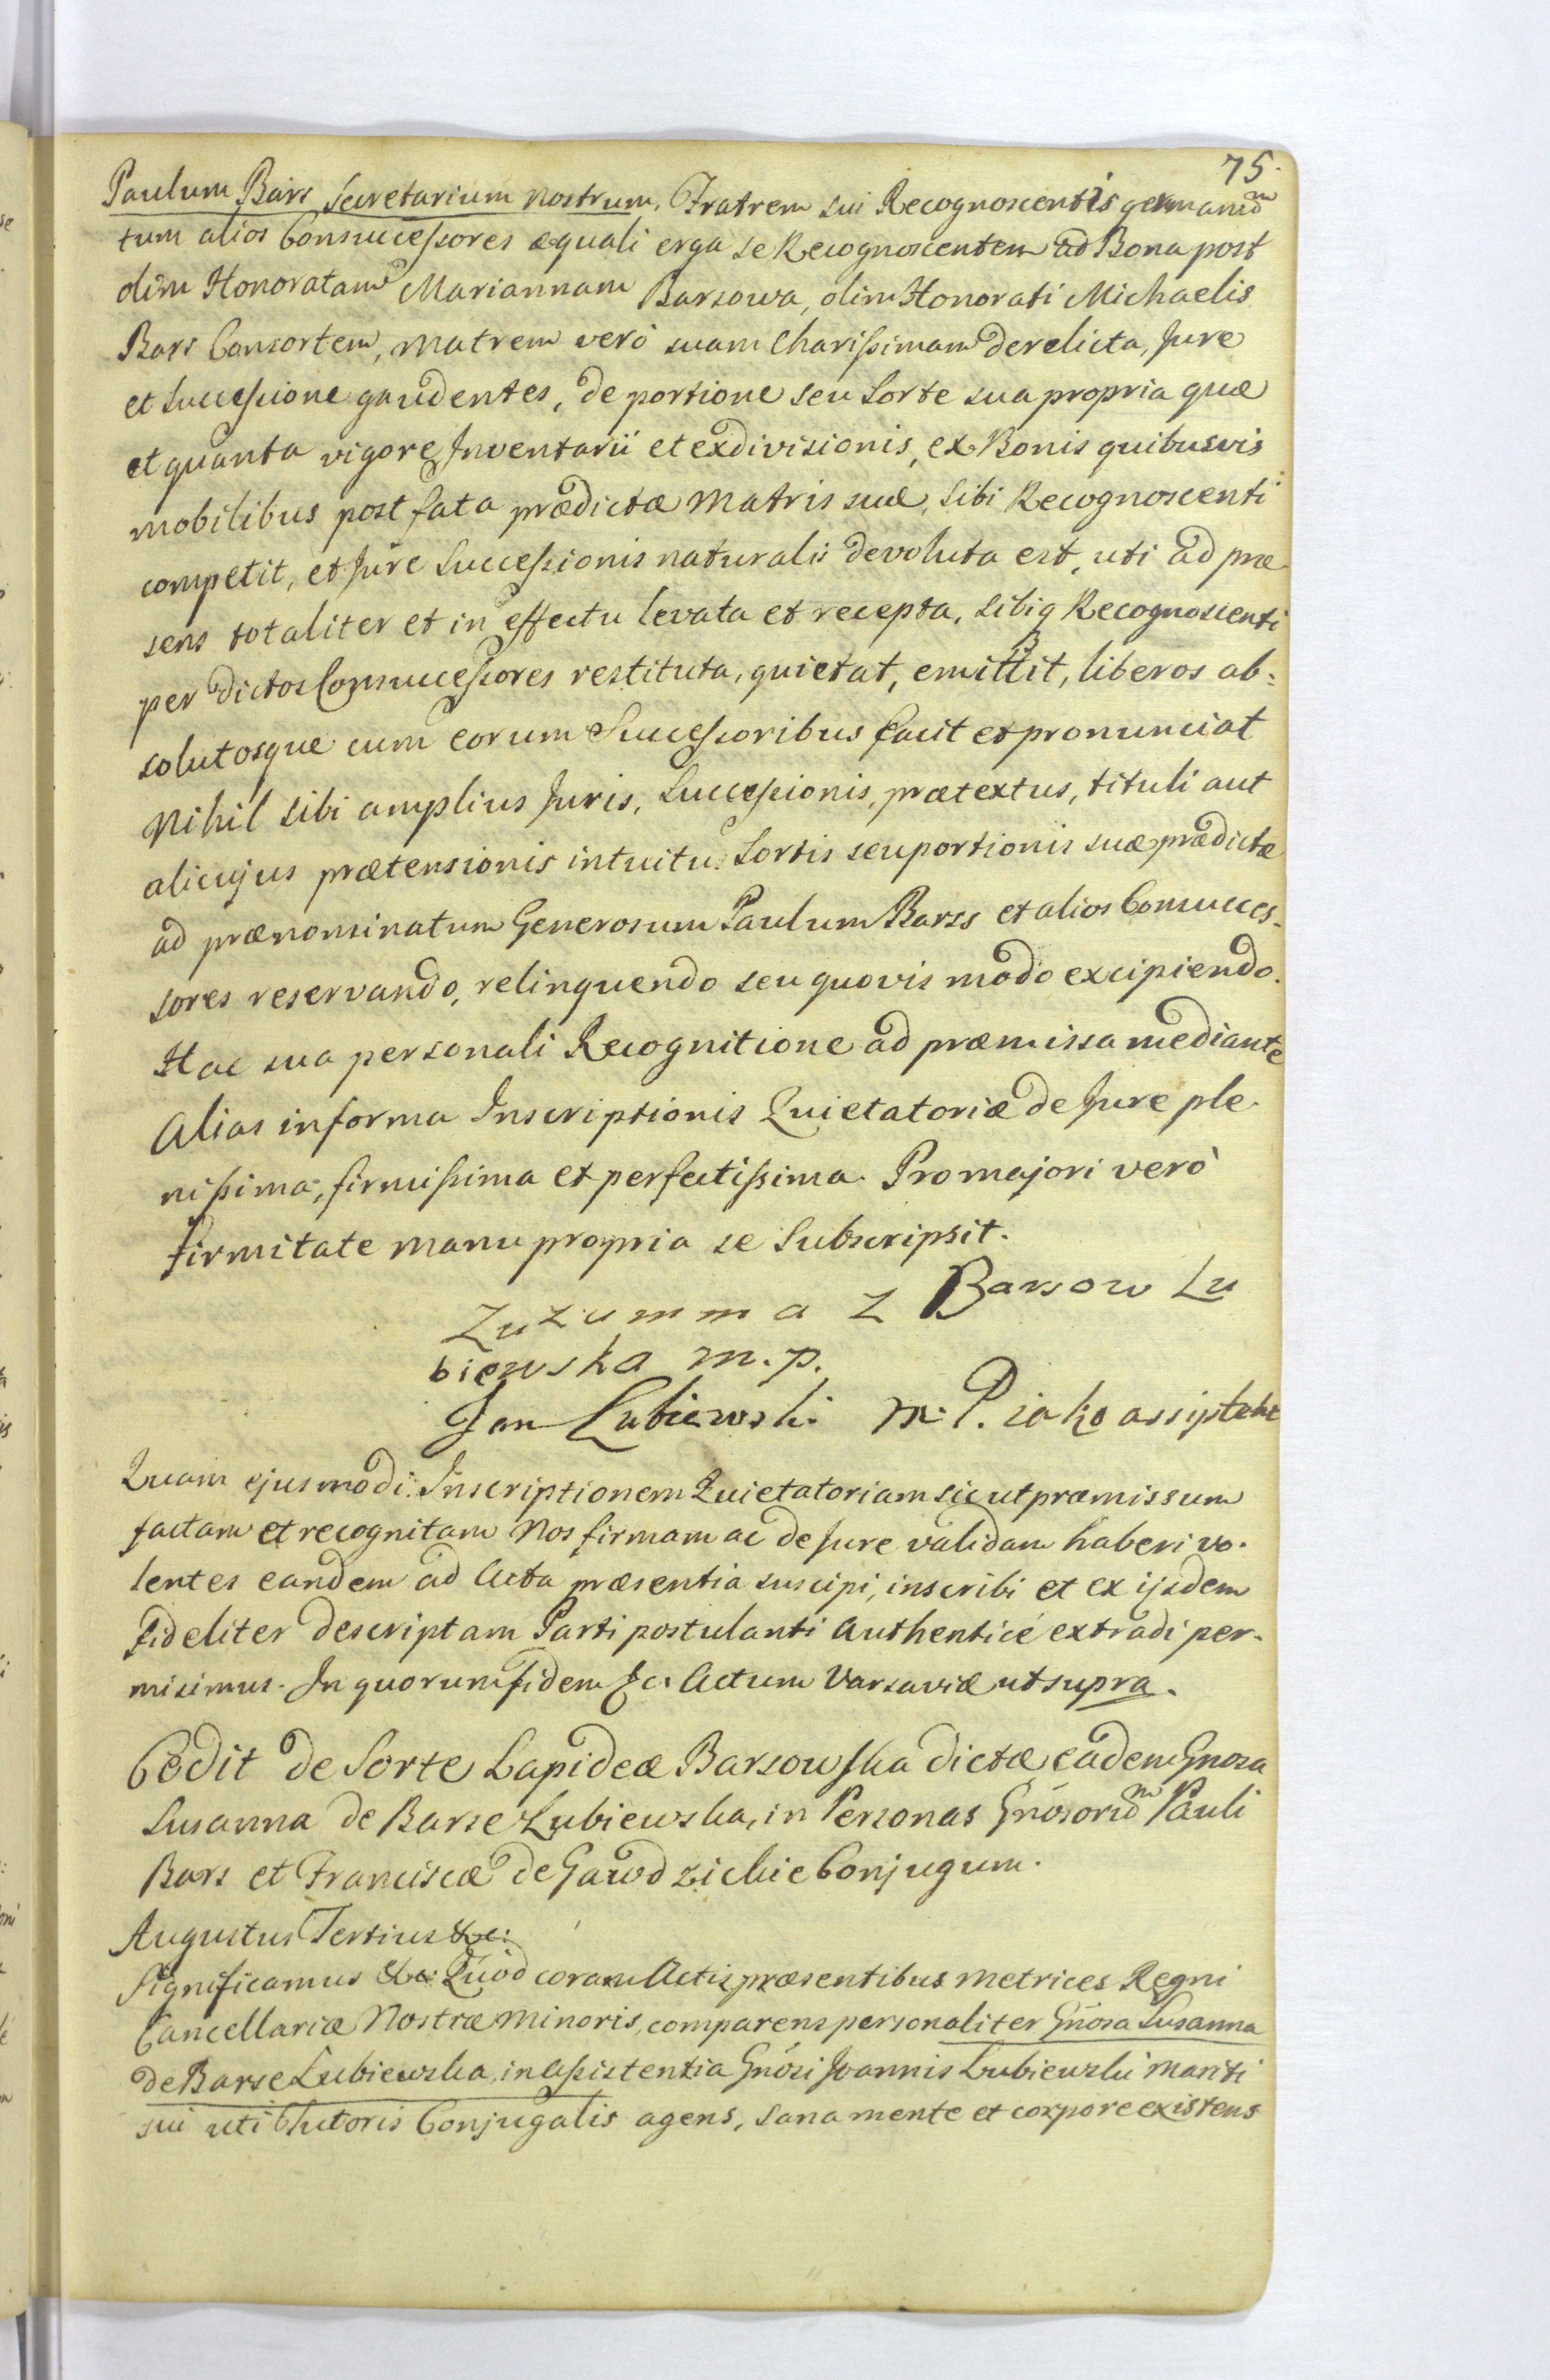 75.
Paulum Bars Secretarium nostrum, Fratrem sui Recognoscentis germanũm
tum alios Consuccessores æquali erga se Recognoscentem ad Bona post
olim Honoratam Mariannam Barsowa, olim Honorati Michaelis
Bars Consortem, matrem verò suam Charissimam derelicta, Jure
et Successione gaudentes, de portione seu Sorte sua propria quæ
et quanta vigore Inventarii et exdivisionis, ex Bonis quibusvis
mobilibus post fata prædictæ Matris suæ, sibi Recognoscenti
competit, et Jure Successionis naturalis devoluta est, uti ad præ
sens totaliter et in effectu levata et recepta, sibiq Recognoscenti
per dictos Consuccessores restituta, quietat, emittit, liberos ab:
solutosque cum eorum Successoribus facit et pronunciat
Nihil sibi amplius Juris, Successionis, prætextus, tituli aut
alicujus prætensionis intuitu Sortis seu portionis suæ prædictæ
ad prænominatum Generosum Paulum Barss et alios Consucces-
sores reservando, relinquendo seu quovis modo excipiendo.
Hac sua personali Recognitione ad præmissa mediante
Alias in forma Inscriptionis Quietatoriæ de Jure ple-
nissima, firmissima et perfectissima. Pro majori verò
firmitate manu propria se Subscripsit.
Zuzumma z Barsow Lu
biewska m.p.
Jan Lubiewski m.P. iako assistent
Quam ejusmodi Inscriptionem Quietatoriam sic ut præmissum
factam et recognitam Nos firmam ac de Jure validam haberi vo-
lentes eandem ad Acta præsentia suscipi, inscribi et ex ijsdem
fideliter descriptam Parti postulanti Authenticé extradi per-
misimus. In quorum fidem &c. Actum Varsaviæ ut supra.
Cedit de Sorte Lapideæ Barsowska dictæ eadem Gnosa
Susanna de Barse Lubiewska, in Personas Gnósorũm Pauli
Bars et Franciscæ de Gawdzickie Conjugum.
Augustus Tertius &c:
Significamus &c: Quòd coram Actis præsentibus Metrices Regni
Cancellariæ Nostræ Minoris, comparens personaliter Gnósa Susanna
de Barse Lubiewska, in Assistentia Gnósi Joannis Lubiewski Mariti
sui uti Tutoris Conjugalis agens, sana mente et corpore existens